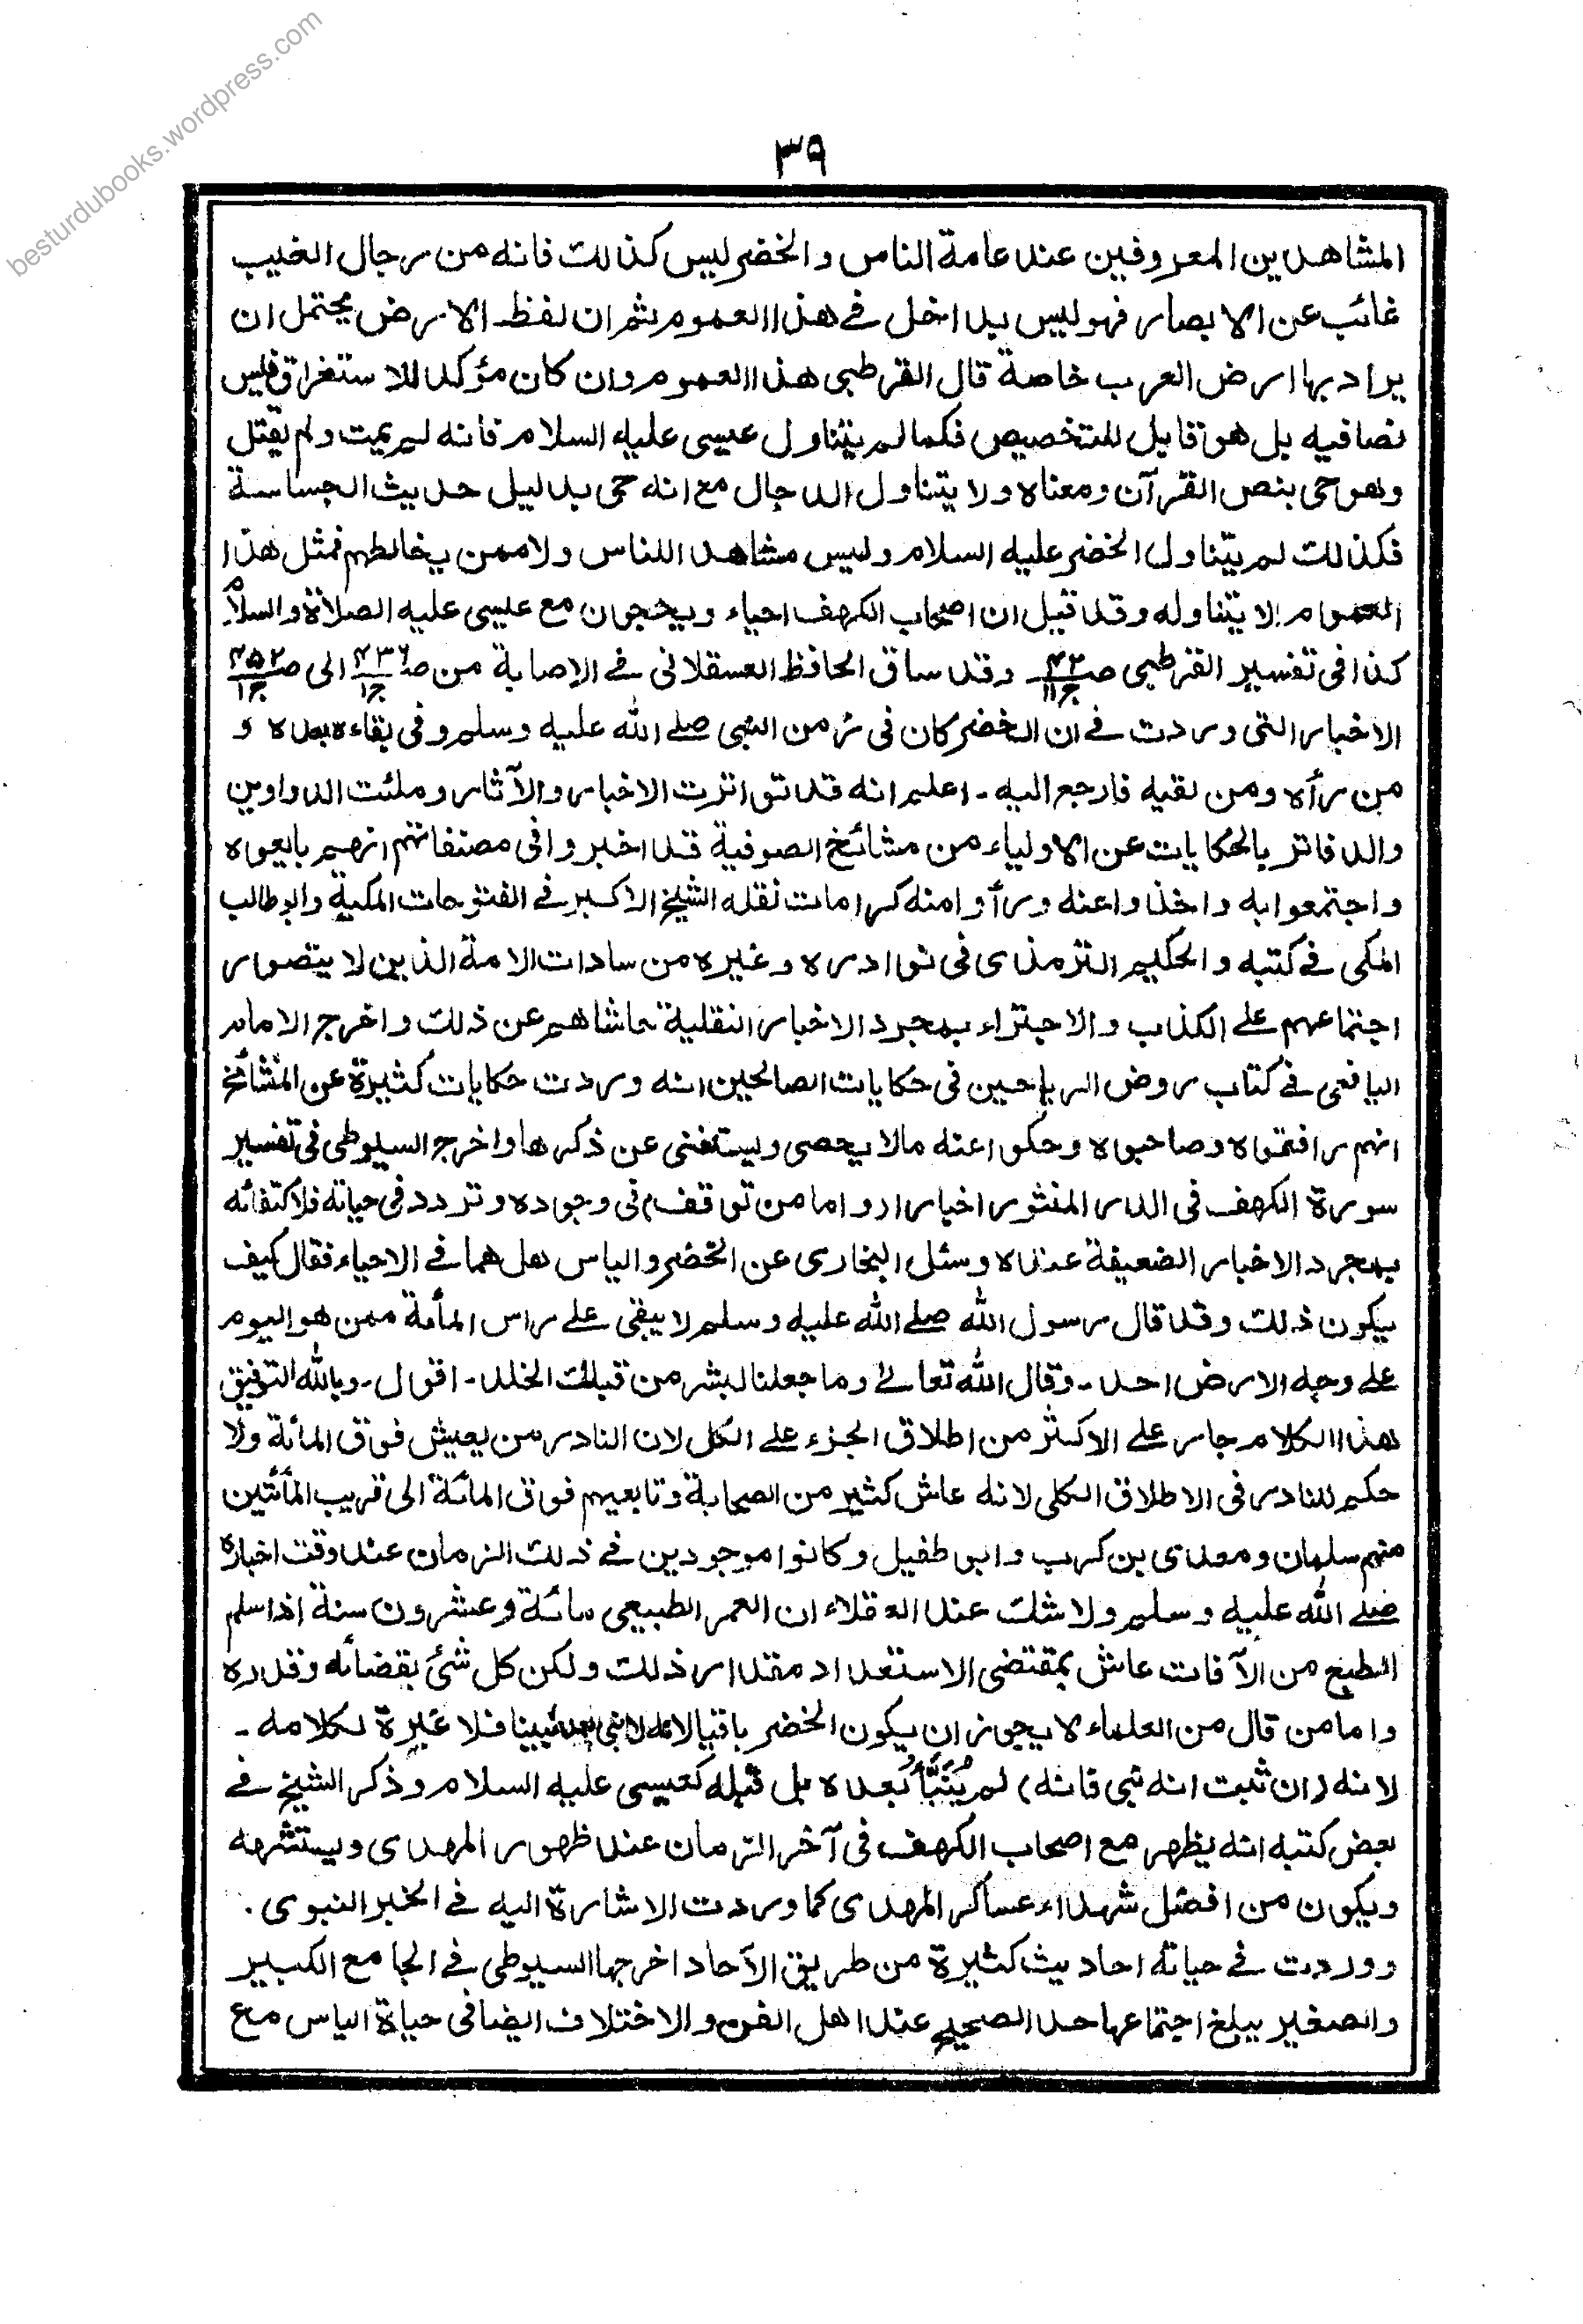 besturdubooks.wordpress.com
٣٩
المشاهدين المعروفين عند عامة الناس والخضر ليس كذلك فانه من رجال الغيب
غائب عن الابصار فهو ليس بداخل فى هذا العموم ثم ان لفظ الارض يحتمل ان
يراد بها ارض العرب خاصة قال القرطبى هذا العموم وان كان مؤكدا للاستغراق فليس
نصا فيه بل هو قابل للتخصيص فكما لم يتناول عيسى عليه السلام فانه لم يمت ولم يقتل
وهو حى بنص القرآن ومعناه ولا يتناول الدجال مع انه حى بدليل حديث الجساسة
فكذلك لم يتناول الخضر عليه السلام وليس مشاهدا للناس ولا ممن يخالطهم فمثل هذا
العموم لا يتناوله وقد قيل ان اصحاب الكهف احياء ويحجون مع عيسى عليه الصلاة والسلام
كذا فى تفسير القرطبى صـ٤٢ ج١١ وقد ساق الحافظ العسقلانى فى الاصابة من صـ٤٣٦ ج١ الى صـ٤٥٢ ج١
الاخبار التى وردت فى ان الخضر كان فى زمن النبى صلى الله عليه وسلم وفى بقاءه بعده و
من رأه ومن لقيه فارجع اليه - اعلم انه قد تواترت الاخبار والآثار وملئت الدواوين
والدفاتر بالحكايات عن الاولياء من مشائخ الصوفية قد اخبروا فى مصنفاتهم انهم بايعوه
واجتمعوا به واخذوا عنه ورأوا منه كرامات نقله الشيخ الاكبر فى الفتوحات المكية وابو طالب
المكى فى كتبه والحكيم الترمذى فى نوادره وغيره من سادات الامة الذين لا يتصور
اجتماعهم على الكذاب والاجتراء بمجرد الاخبار النقلية حاشاهم عن ذلك واخرج الامام
اليافعى فى كتاب روض الرياحين فى حكايات الصالحين انه وردت حكايات كثيرة عن المشائخ
انهم رافقوه وصاحبوه وحكوا عنه مالا يحصى ويستغنى عن ذكرها واخرج السيوطى فى تفسير
سورة الكهف فى الدر المنثور اخبارا واما من توقف فى وجوده وتردد فى حياته فلاكتفائه
بمجرد الاخبار الضعيفة عنده وسئل البخارى عن الخضر والياس هل هما فى الاحياء فقال كيف
يكون ذلك وقد قال رسول الله صلى الله عليه وسلم لا يبقى على راس المأة ممن هو اليوم
على وجه الارض احد - وقال الله تعالى وما جعلنا لبشر من قبلك الخلد - اقول - وبالله التوفيق
هذا الكلام جار على الاكثر من اطلاق الجزء على الكل لان النادر من يعيش فوق المائة ولا
حكم للنادر فى الاطلاق الكلى لانه عاش كثير من الصحابة وتابعيهم فوق المائة الى قريب المأتين
منهم سلمان ومعدى بن كرب وابى طفيل وكانوا موجودين فى ذلك الزمان عند وقت اخباره
صلى الله عليه وسلم ولا شك عند العقلاء ان العمر الطبيعى مائة وعشرون سنة اذا سلم
الطبع من الآفات عاش بمقتضى الاستعداد مقدار ذلك ولكن كل شئ بقضائه وقدره
واما من قال من العلماء لا يجوز ان يكون الخضر باقيا لانه لا نبى بعد نبينا فلا عبرة لكلامه -
لانه (ان ثبت انه نبى فانه) لم يُنَبَّأْ بعده بل قبله كعيسى عليه السلام وذكر الشيخ فى
بعض كتبه انه يظهر مع اصحاب الكهف فى آخر الزمان عند ظهور المهدى ويستشهد
ويكون من افضل شهداء عساكر المهدى كما وردت الاشارة اليه فى الخبر النبوى .
ووردت فى حياته احاديث كثيرة من طريق الآحاد اخرجها السيوطى فى الجامع الكبير
والصغير يبلغ اجتماعها حد الصحيح عند اهل الفن والاختلاف ايضا فى حياة الياس مع